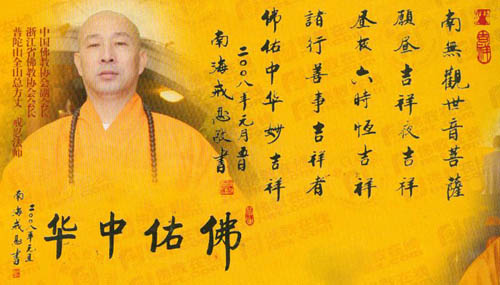 南無觀世音菩薩
願昼吉祥夜吉祥
昼夜六時恆吉祥
諸行善事吉祥者
佛佑中华妙吉祥
二〇〇八年元月五日
南海戒忍敬書
中国佛教协会副会长
浙江省佛教协会会长
普陀山全山总方丈 戒忍法师
佛佑中华
二〇〇八年元旦
南海戒忍書